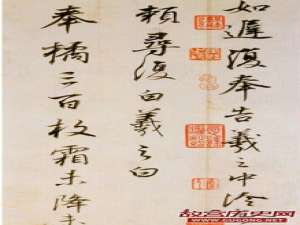 如遲復奉告羲之中冷
賴尋復白羲之白
奉橘三百枚霜未降未
故宫历史网
WWW.GUGONG.NET